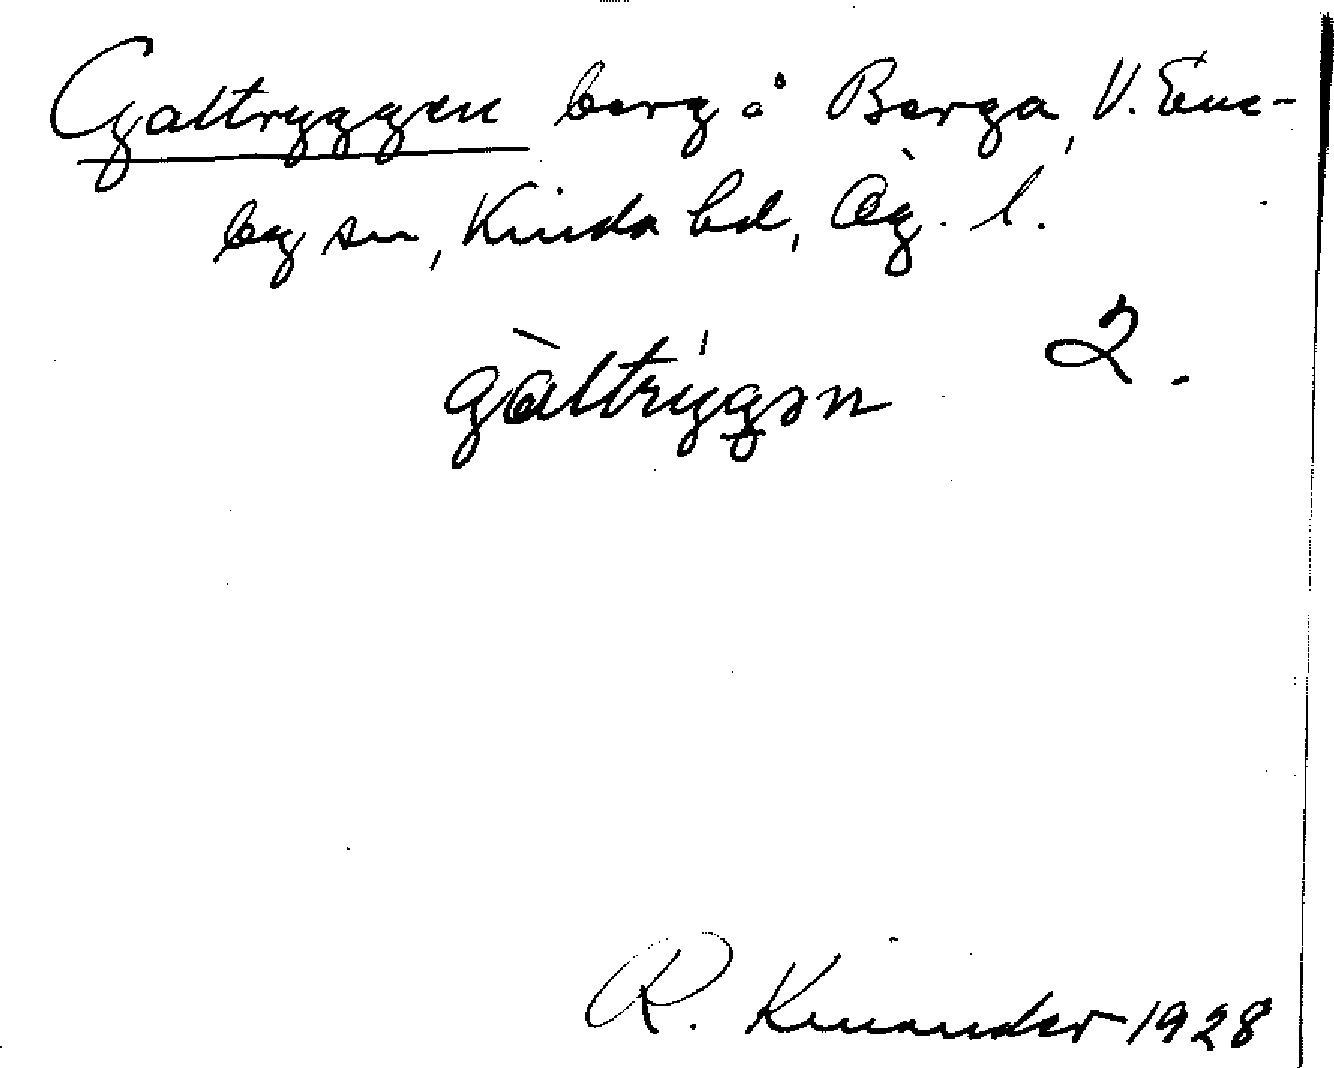 Galtryggen berg å Berga, V. Ene-
by sn, Kinda hd, Ög. l.
2.
gàltrýgən
R. Kinander 1928